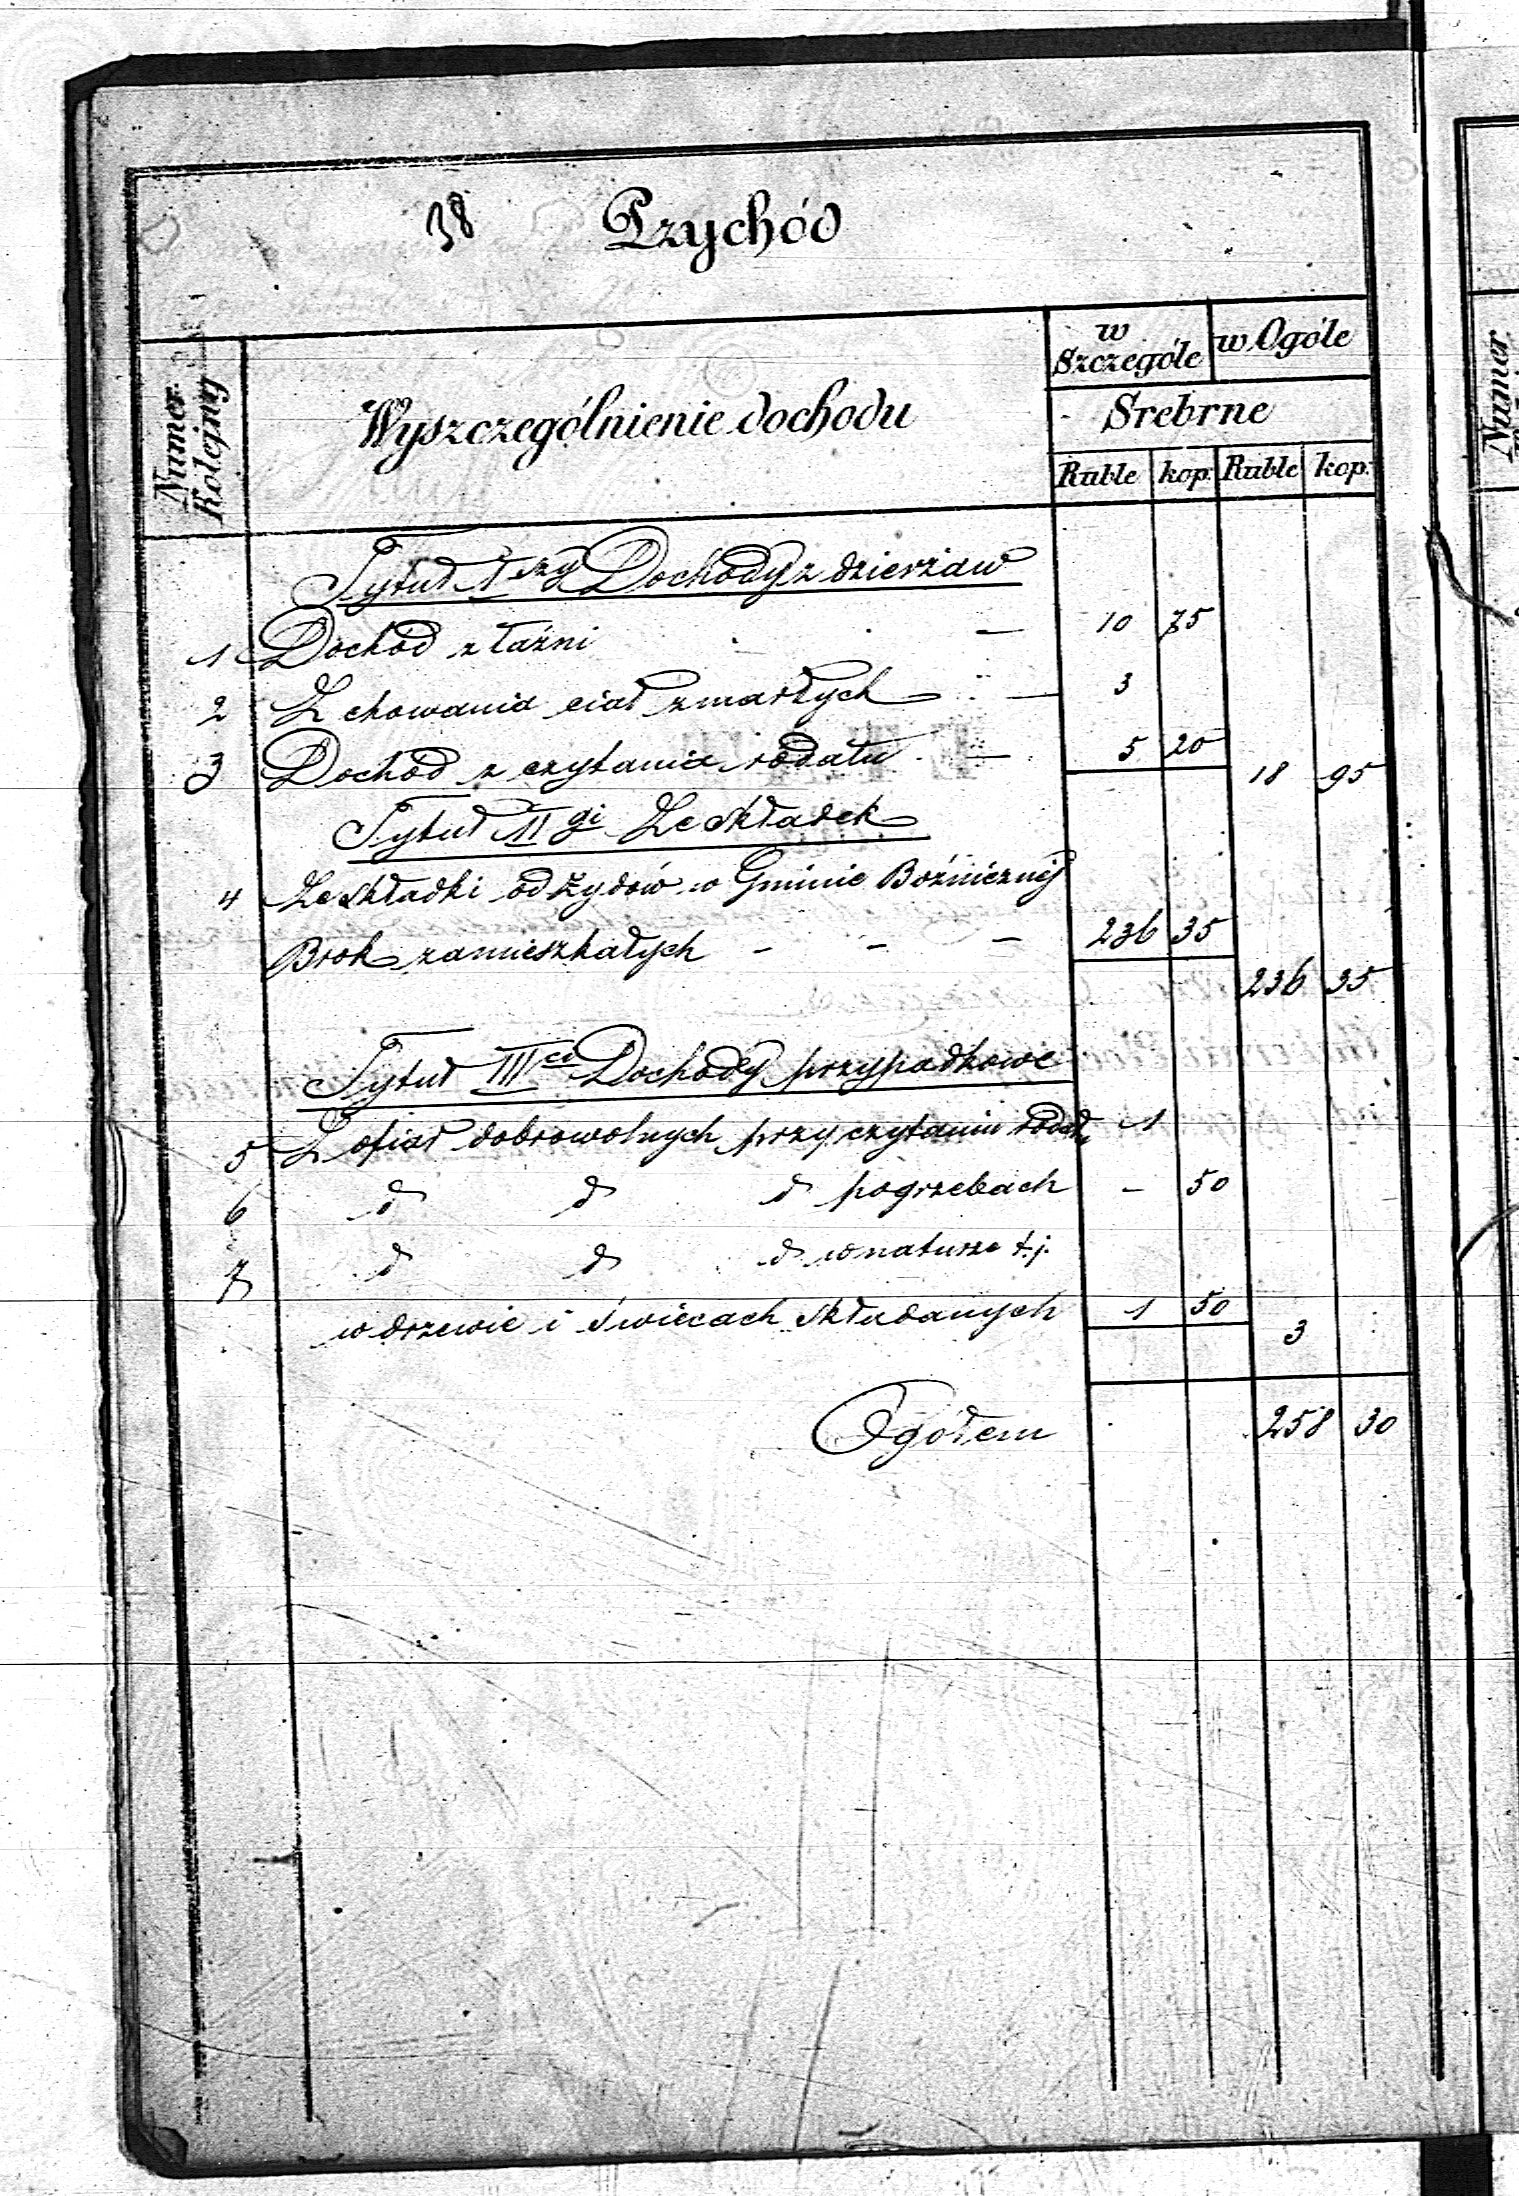 38 Przychód
Numer Kolejny
Wyszczególnienie dochodu
w Szczególe
w Ogóle
Srebrne
Ruble kop: Ruble kop:
Tytuł Iszy Dochody z dzierżaw
1 Dochód z łaźni — 10 75
2 Z chowania ciał zmarłych — 3
3 Dochód z czytania rodału — 5 20
18 95
Tytuł IIgi Ze składek
4 Ze składki od Żydów w Gminie Bóżnicznéj
Brok zamieszkałych - - - 236 35
236 35
Tytuł IIIci Dochody przypadkowe
5 Z ofiar dobrowolnych przy czytaniu rodału 1
6 d d d pogrzebach - 50
7 d d d w naturze t.j.
w drzewie i świecach składanych 1 50
3
Ogółem 258 30
Numer